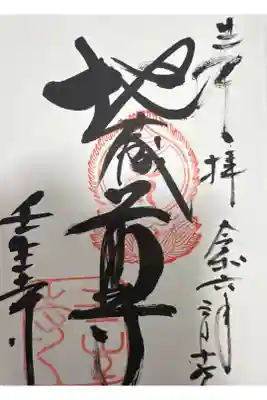 奉拝
令和六年
地蔵尊
壬生寺